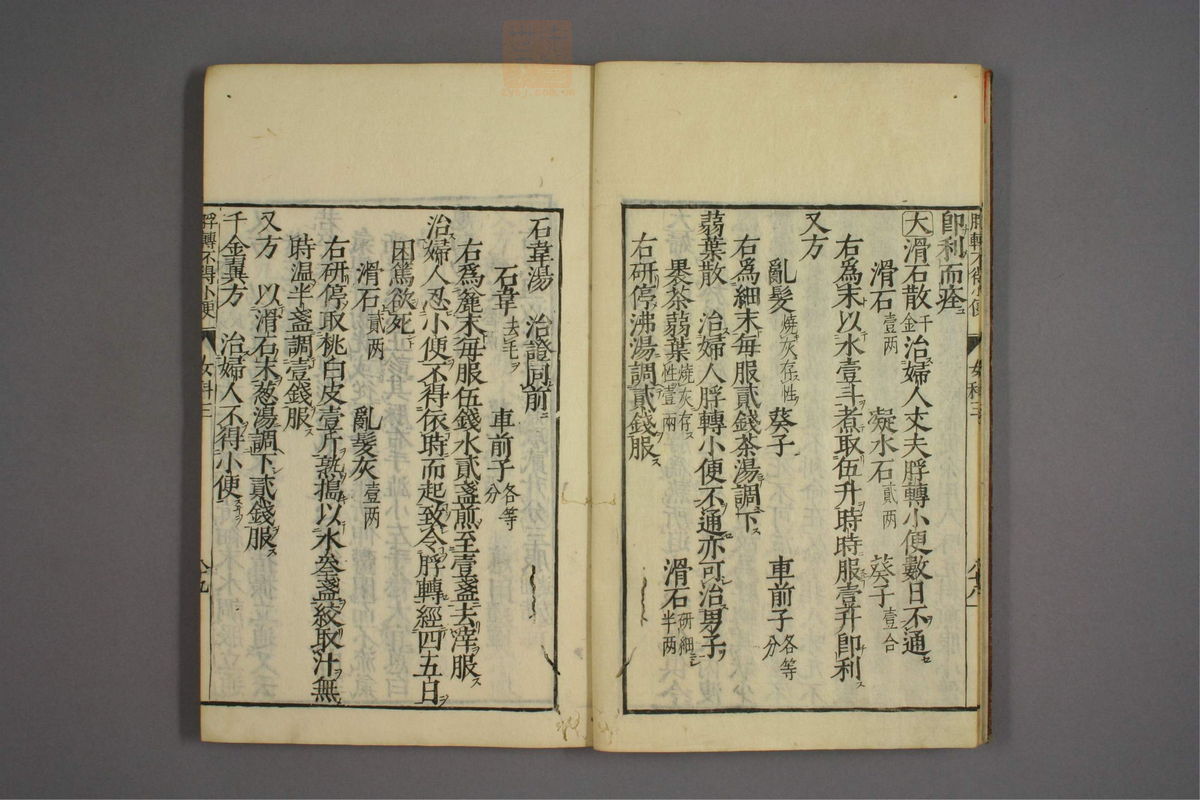 脬轉不得小便 女科三 八十八
即利而痊
大滑石散千金治婦人丈夫脬轉小便數日不通
滑石壹两 凝水石貳两 葵子壹合
右爲末以水壹斗煮取伍升時時服壹升卽利
又方
亂髮燒灰存性 葵子 車前子各等分
右爲細末每服貳錢茶湯調下
蒻葉散 治婦人脬轉小便不通亦可治男子
裹茶蒻葉燒灰存性壹兩 滑石研細半两
右研停沸湯調貳錢服
石韋湯 治證同前
石韋去毛 車前子各等分
右爲麄末每服伍錢水貳盞煎至壹盞去滓服
治婦人忍小便不得依時而起致令脬轉經四五日
困篤欲死
滑石貳两 亂髮灰壹两
右研停取桃白皮壹斤熟搗以水叁盞絞取汁無
時温半盞調壹錢服
又方 以滑石末葱湯調下貳錢服
千金翼方 治婦人不得小便
脬轉不得小便 女科三 八十九